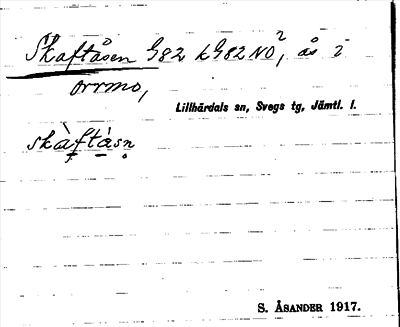 Skaftåsen G82 kG82NO², ås i
orrmo,
Lillhärdals sn, Svegs tg, Jämtl. l.
skàftåsn̥
S. ÅSANDER 1917.